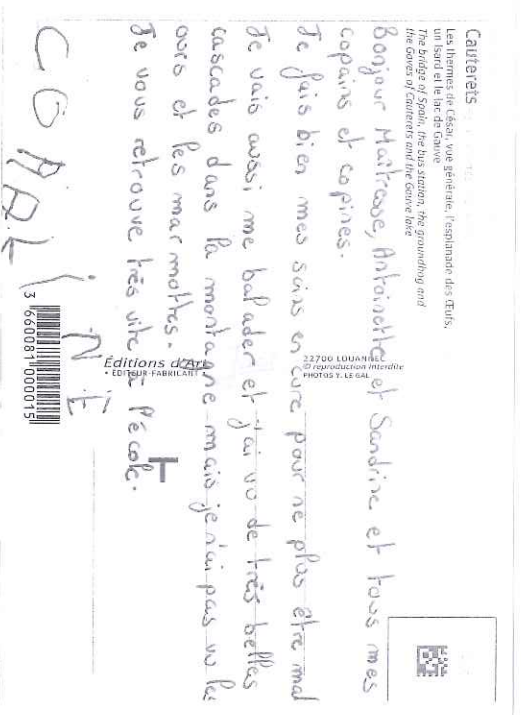 Cauterets
Les thermes de César, vue générale, l'esplanade des Œufs,
un Isard et le lac de Gauve
The bridge of Spain, the bus station, the groundhog and
the Gaves of Cauterets and the Gauve lake
Bonjour Maîtresse, Antoinette et Sandrine et tous mes
copains et copines.
Je fais bien mes soins en cure pour ne plus être mal
Je vais aussi me balader et j'ai vu de très belles
cascades dans la montagne mais je n'ai pas vu les
ours et les marmottes.
Je vous retrouve très vite à l'école.
Éditions d'Art
• ÉDITEUR-FABRICANT •
22700 LOUANNEC
© reproduction interdite
PHOTOS Y. LE GAL
3 660081 000015